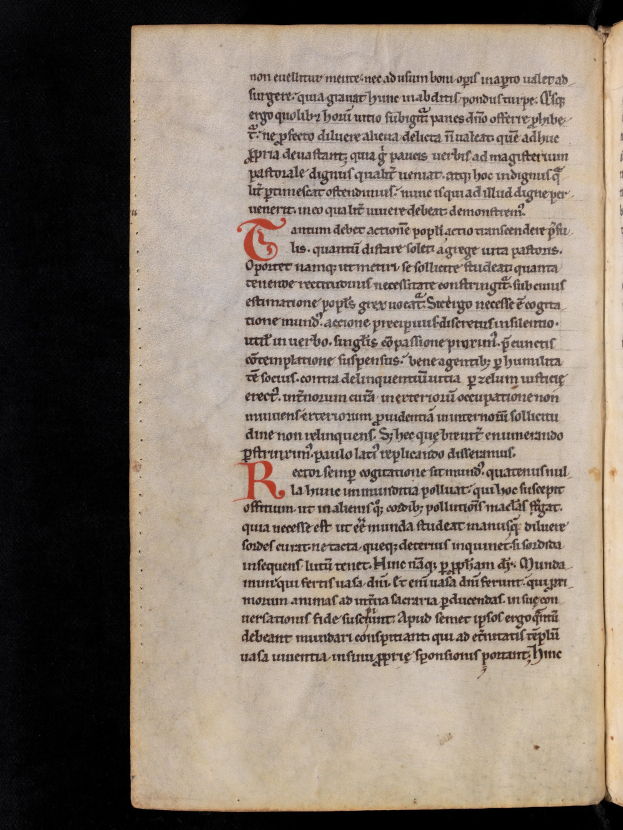 non euellitur mente: nec ad usum boni opis inapto ualet ad
surgere. quia grauat hunc in abditis pondus turpe. Q̄sq;
ergo quolib; horū uitio subigit᷑ panes dn̄o offerre ꝓhibe
t᷑. ne ꝓfecto diluere aliena delicta n̄ ualeat. quē adhuc
ꝓpria deuastant; quia g̊ paucis uerbis ad magisterium
pastorale dignus qualit᷑ ueniat. atq; hoc indignus
lit᷑ ꝑtimescat ostendimus. nunc is qui ad illud digne per
uenerit. in eo qualit᷑ uiuere debeat demonstrem᷒.
Tantum debet actionē popli actio transcendere p̄su
lis. quantū distare solet a grege uita pastoris.
Oportet namq; ut metiri se sollicite studeat. quanta
tenende rectitudinis necessitate constringit᷑. sub cuius
estimatione popl's grex uocat᷑. Sit ergo necesse ē cogita
tione mund᷒. actione precipuus. discretus in silentio.
utilis in uerbo. singl'is cōpassione proxim᷒. p̄ cunctis
cōtemplatione suspensus. bene agentib; ꝑ humilita
tē socius. contra delinquentiū uitia ꝑ zelum iusticię
erect᷒. int᷑norum curā in exteriorū occupatione non
minuens. exteriorum ꝓuidentiā in internorū sollicitu
dine non relinquens. S; hec quę breuit᷑ enumerando
ꝑstrinxim᷒. paulo lati᷒ replicando disseramus.
Rector semꝑ cogitatione sit mund᷒. quatenus nul
la hunc inmunditia polluat. qui hoc suscepit
offitium. ut in alienis q̊q; cordib; pollutionis maclas t᷑gat.
quia necesse est ut eē munda studeat manus. quę diluere
sordes curat. ne tacta queq; deterius inquinet. si sordida
insequens lutū tenet. Hinc nāq; ꝑ ꝓph̄am dr̄. Munda
mini qui fertis uasa dn̄i. dn̄i et enī uasa ferunt. qui ꝓxi
morum animas ad int᷑na sacraria ꝑducendas. in suę con
uersationis fide suscipiunt. Apud semet ipsos ergo q̄ntū
debeant mundari conspitiant. qui ad et᷑nitatis tēplū
uasa uiuentia. in sinu ꝓprię sponsionis portant. Hinc